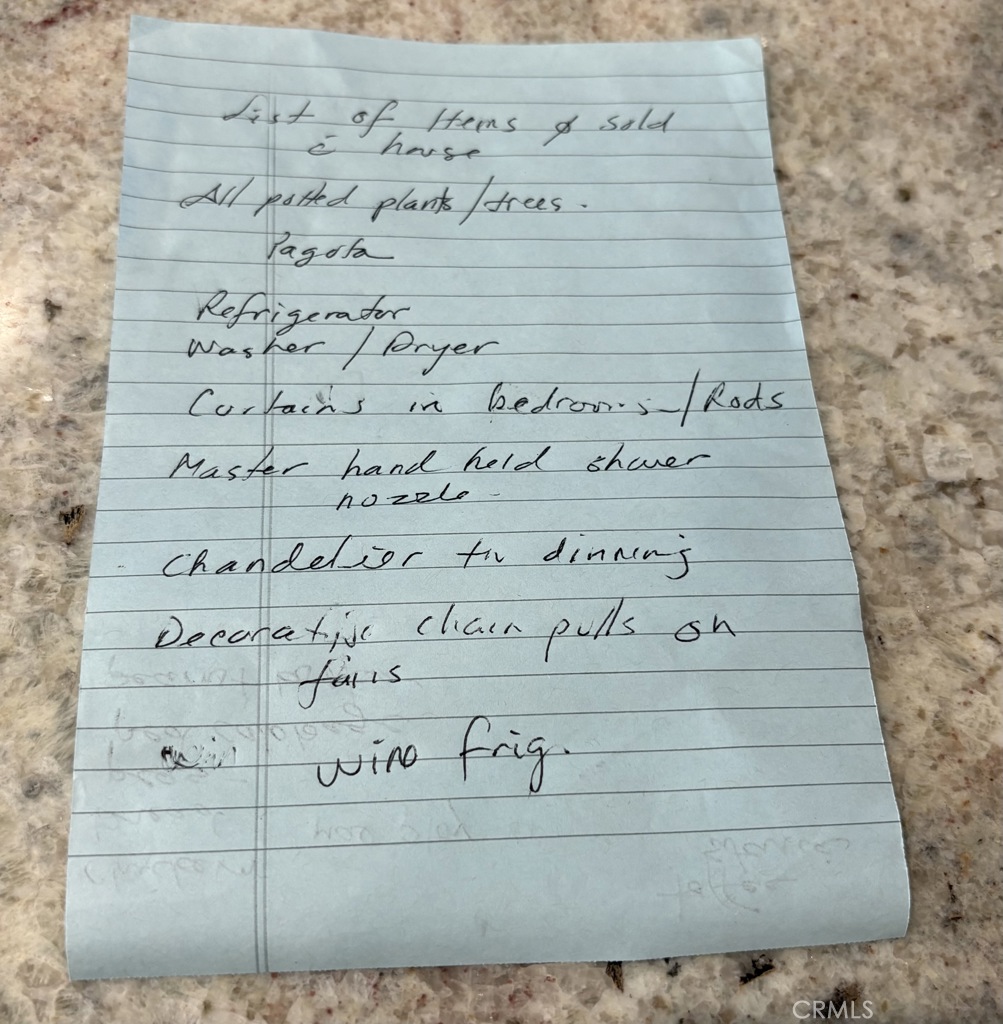 List of Items ø sold
c̄ house
All potted plants/trees.
Pagota
Refrigerator
Washer / Dryer
Curtains in bedrooms/Rods
Master hand held shower
nozzle
Chandelier in dinning
Decorative chain pulls on
fans
wine frig.
CRMLS